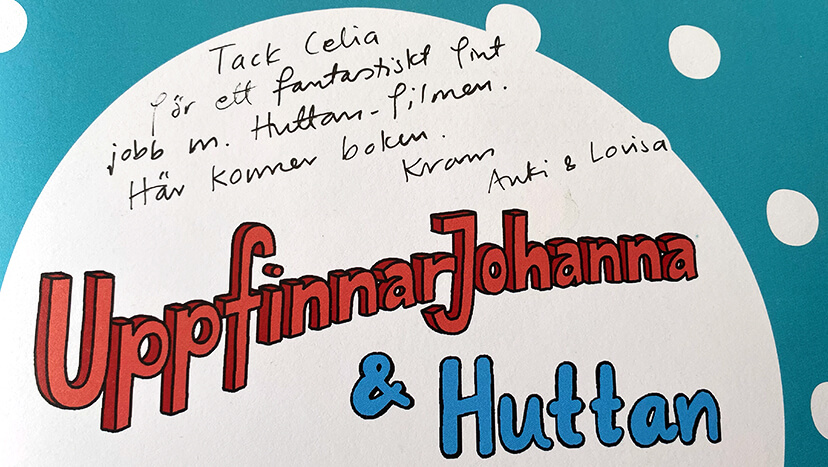 Tack Celia
för ett fantastiskt fint
jobb m. Huttan-filmen.
Här kommer boken.
Kram
Anki & Lovisa
UppfinnarJohanna
& Huttan